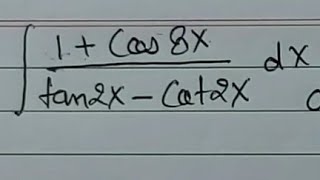 ∫ (1 + Cos 8x) / (tan2x - Cot2x) dx